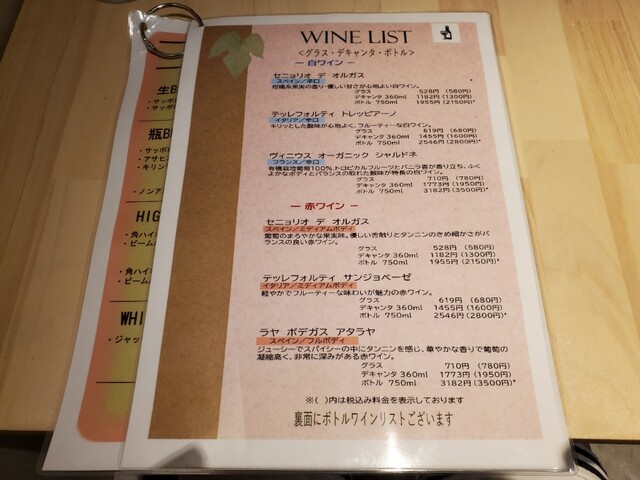 WINE LIST
<グラス・デキャンタ・ボトル>
― 白ワイン ―
セニョリオ デ オルガス
スペイン/辛口
柑橘系果実の香り・優しい甘さが心地よい白ワイン。
グラス 528円 (580円)
デキャンタ 360ml 1182円 (1300円)
ボトル 750ml 1955円 (2150円)*
テッレフォルティ トレッビアーノ
イタリア/辛口
キリッとした酸味が心地よく、フルーティーな白ワイン。
グラス 619円 (680円)
デキャンタ 360ml 1455円 (1600円)
ボトル 750ml 2546円 (2800円)*
ヴィニウス オーガニック シャルドネ
フランス/辛口
有機栽培葡萄100%、トロピカルフルーツとバニラ香が香り立ち、ふく
よかなボディとバランスの取れた酸味が特長の白ワイン。
グラス 710円 (780円)
デキャンタ 360ml 1773円 (1950円)
ボトル 750ml 3182円 (3500円)*
― 赤ワイン ―
セニョリオ デ オルガス
スペイン/ミディアムボディ
葡萄のまろやかな果実味。優しい舌触りとタンニンのきめ細かさがバ
ランスの良い赤ワイン。
グラス 528円 (580円)
デキャンタ 360ml 1182円 (1300円)
ボトル 750ml 1955円 (2150円)*
テッレフォルティ サンジョベーゼ
イタリア/ミディアムボディ
軽やかでフルーティーな味わいが魅力の赤ワイン。
グラス 619円 (680円)
デキャンタ 360ml 1455円 (1600円)
ボトル 750ml 2546円 (2800円)*
ラヤ ボデガス アタラヤ
スペイン/フルボディ
ジューシーでスパイシーの中にタンニンを感じ、華やかな香りで葡萄の
凝縮高く、非常に深みがある赤ワイン。
グラス 710円 (780円)
デキャンタ 360ml 1773円 (1950円)
ボトル 750ml 3182円 (3500円)*
※( )内は税込み料金を表示しております
裏面にボトルワインリストございます
生B
・サッポ
・サッポ
瓶B
・サッポロ
・アサヒ
・キリン
・ノンア
HIG
・角ハイ
・ビーム
・角ハイ
・ビーム
WHI
・ジャッ